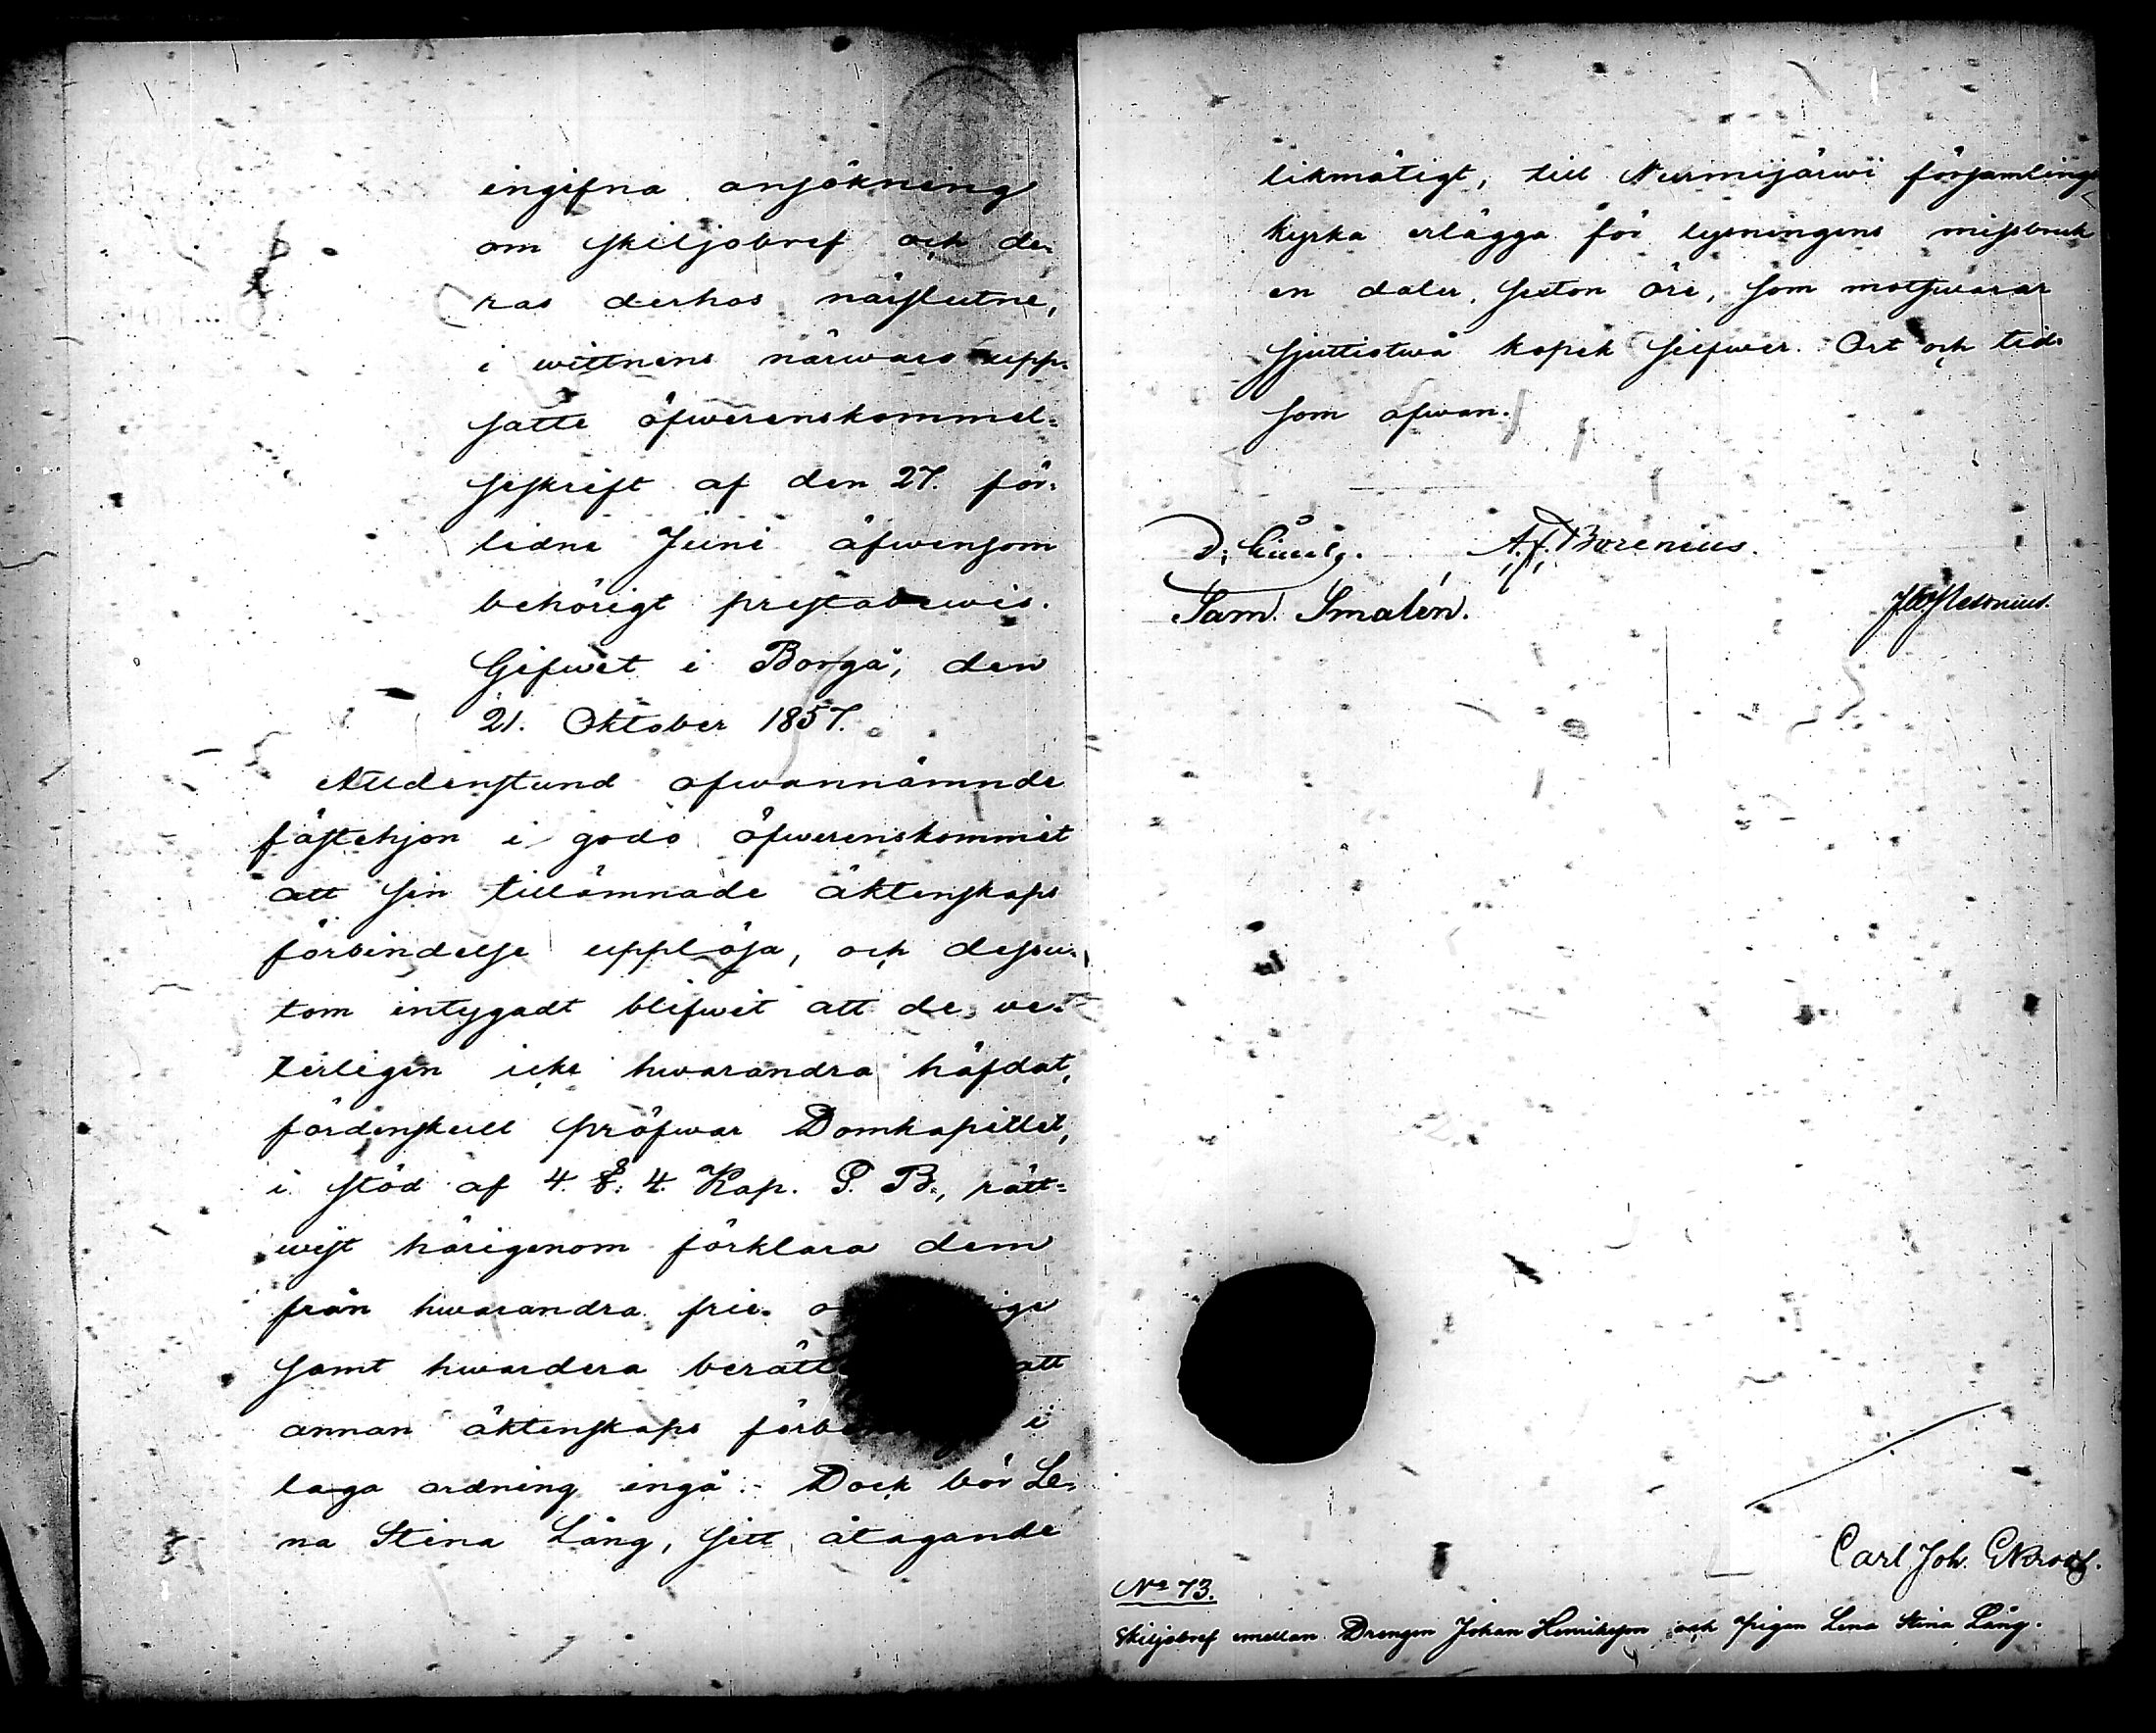 ingifna ansökning
om skiljobref och de-
ras derhos närslutne,
i wittnens närwaro upp-
satte öfwerenskommel-
seskrift af den 27. för-
lidne Juni äfwensom
behörigt prestabewis.
Gifwet i Borgå, den
21. Oktober 1857.
Alldenstund ofwannämnde
fästehjon i godo öfwerenskommit
att sin tillämnade äktenskaps
förbindelse upplösa, och dessu-
tom intygadt blifwit att de ve-
terligen icke hwarandra häfdat,
fördenskull pröfwar Domkapitlet,
i stöd af 4. §. 4. Kap. G. B., rätt-
wist härigenom förklara dem
från hwarandra frie
samt hwardera att
annan äktenskaps i
laga ordning ingå. Dock bör Le-
na Stina Lång, sitt åtagande
likmätigt, till Nurmijärwi församlings
kyrka erlägga för lysningens missbruk
en daler, sexton öre, som motswarar
sjuttiotwå kopek silfwer. Ort och tid
som ofwan.
A. F. Borenius.
Sam. Smalén.
Carl Joh.
No 73.
Skiljobref emellan Drengen Johan Henriksson och pigan Lena Stina Lång.